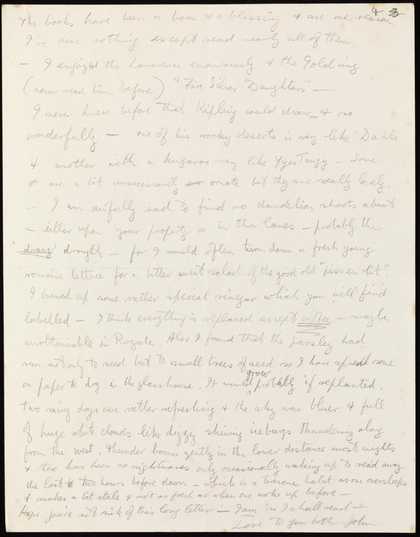 The books have been a boon & a blessing & are one reason
I've done nothing except read nearly all of them
— I enjoyed the Lawrence enormously & the Golding
(never read him before) & "Four Silver Daughters" —
I never knew before that Kipling could draw — & so
wonderfully — one of his rocky deserts is very like Dali's
& another with a kangaroo very like Yves Tanguy — Some
are a bit unnecessarily ornate but they are really lovely
— I am awfully sad to find no dandelion shoots about
— either upon your property or in the lanes — probably the
drought — for I would often turn down a fresh young
romaine lettuce for a bitter salad of the good old "pissen lit"
I used up some rather special vinegar which you will find
labelled — I think everything is replaced except — maybe
unobtainable in Reigate. Also I found that the parsley had
run not only to seed but to small trees of seed so I have spread some
on paper to dry in the glasshouse. It would probably grow if replanted.
Two rainy days are rather refreshing & the sky was bluer & full
of huge white clouds like dizzy shining icebergs thundering along
from the west. Thunder booms gently in the lower distance most nights
& there have been no nightmares only occasionally waking up to read away
the last two hours before dawn — which is a tiresome habit as one oversleeps
& makes a bit stale & not so fresh as when one woke up before —
Hope you're not sick of this long letter — I am so I shall read —
Love to you both John